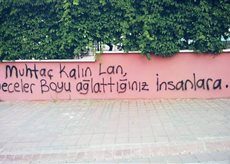 Muhtaç Kalın Lan,
eceler Boyu ağlattığınız insanlara.